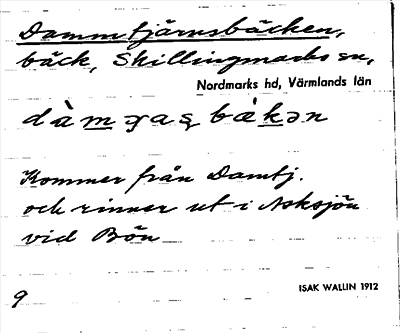 Dammtjärnsbäcken,
bäck, Skillingmarks sn,
Nordmarks hd, Värmlands län
Kommer från Damtj.
och rinner ut i Asksjön
vid Bön
ISAK WALLIN 1912
9